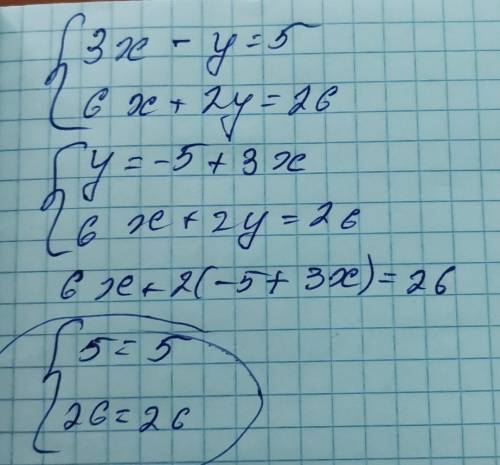 3x - y = 5
6x + 2y = 26
y = -5 + 3x
6x + 2y = 26
6x + 2(-5 + 3x) = 26
5 = 5
26 = 26